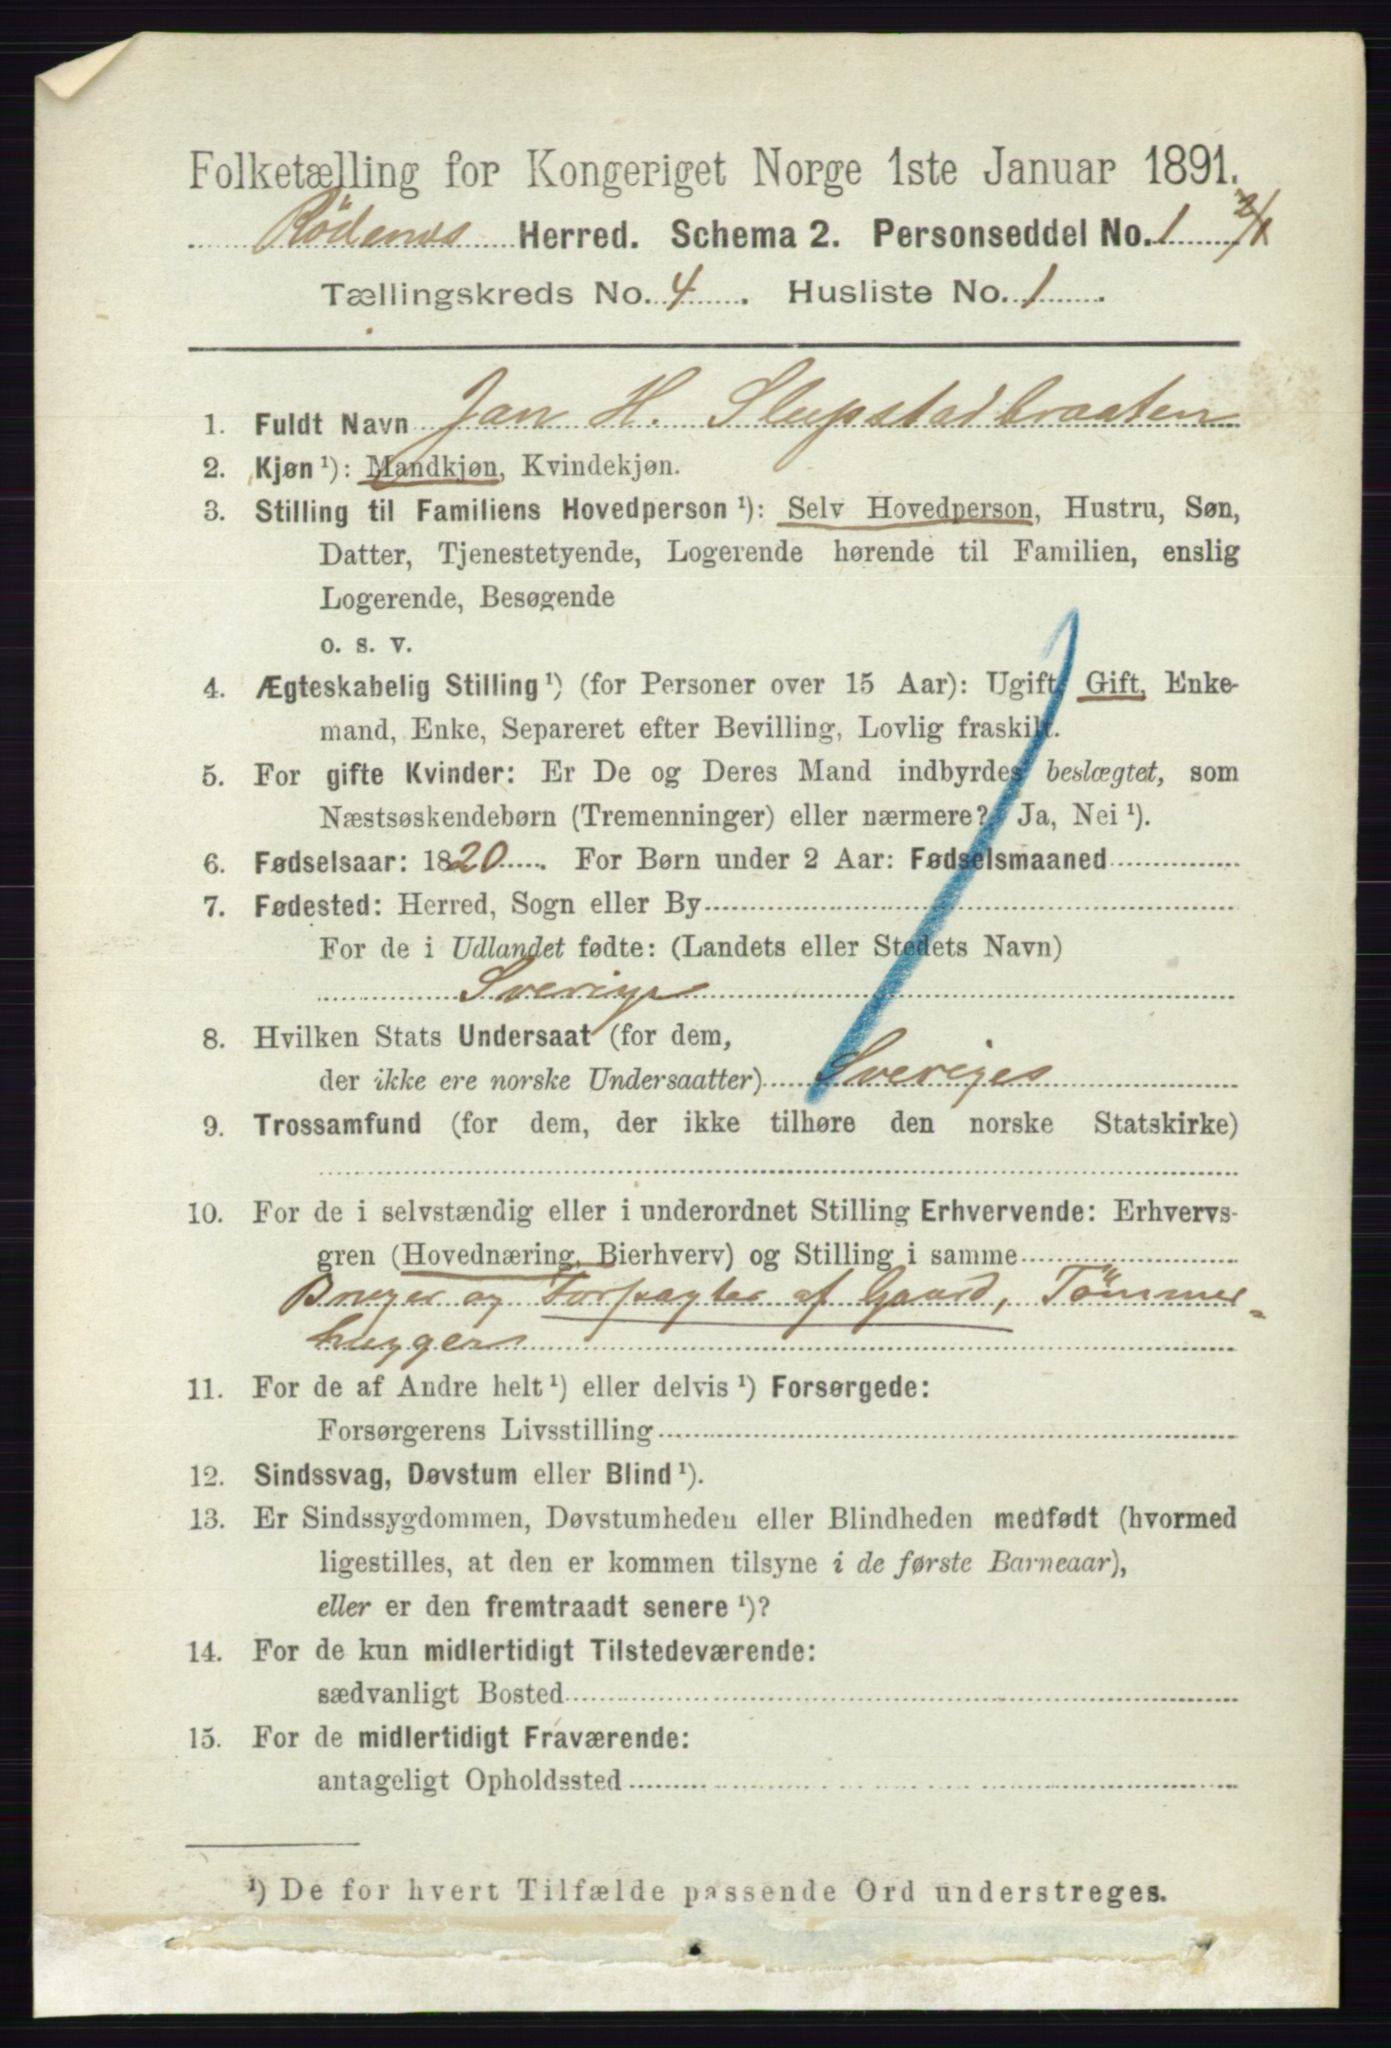 Folketælling for Kongeriget Norge 1ste Januar 1891.
Rödenæs Herred. Schema 2. Personseddel No. 1 2/1
Tællingskreds No. 4. Husliste No. 1.
1. Fuldt Navn Jan H. Slupstadbraaten
2. Kjøn ¹): Mandkjøn, Kvindekjøn.
3. Stilling til Familiens Hovedperson ¹): Selv Hovedperson, Hustru, Søn,
Datter, Tjenestetyende, Logerende hørende til Familien, enslig
Logerende, Besøgende
o. s. v.
4. Ægteskabelig Stilling ¹) (for Personer over 15 Aar): Ugift, Gift, Enke-
mand, Enke, Separeret efter Bevilling, Lovlig fraskilt.
5. For gifte Kvinder: Er De og Deres Mand indbyrdes beslægtet, som
Næstsøskendebørn (Tremenninger) eller nærmere? Ja, Nei ¹).
6. Fødselsaar: 1820. For Børn under 2 Aar: Fødselsmaaned
7. Fødested: Herred, Sogn eller By
For de i Udlandet fødte: (Landets eller Stedets Navn)
Sverige
8. Hvilken Stats Undersaat (for dem,
der ikke ere norske Undersaatter) Sveriges
9. Trossamfund (for dem, der ikke tilhøre den norske Statskirke)
10. For de i selvstændig eller i underordnet Stilling Erhvervende: Erhvervs-
gren (Hovednæring, Bierhverv) og Stilling i samme
Bruger og Forpagter af Gaard, Tömmer-
hugger
11. For de af Andre helt ¹) eller delvis ¹) Forsørgede:
Forsørgerens Livsstilling
12. Sindssvag, Døvstum eller Blind ¹).
13. Er Sindssygdommen, Døvstumheden eller Blindheden medfødt (hvormed
ligestilles, at den er kommen tilsyne i de første Barneaar),
eller er den fremtraadt senere ¹)?
14. For de kun midlertidigt Tilstedeværende:
sædvanligt Bosted
15. For de midlertidigt Fraværende:
antageligt Opholdssted
¹) De for hvert Tilfælde passende Ord understreges.